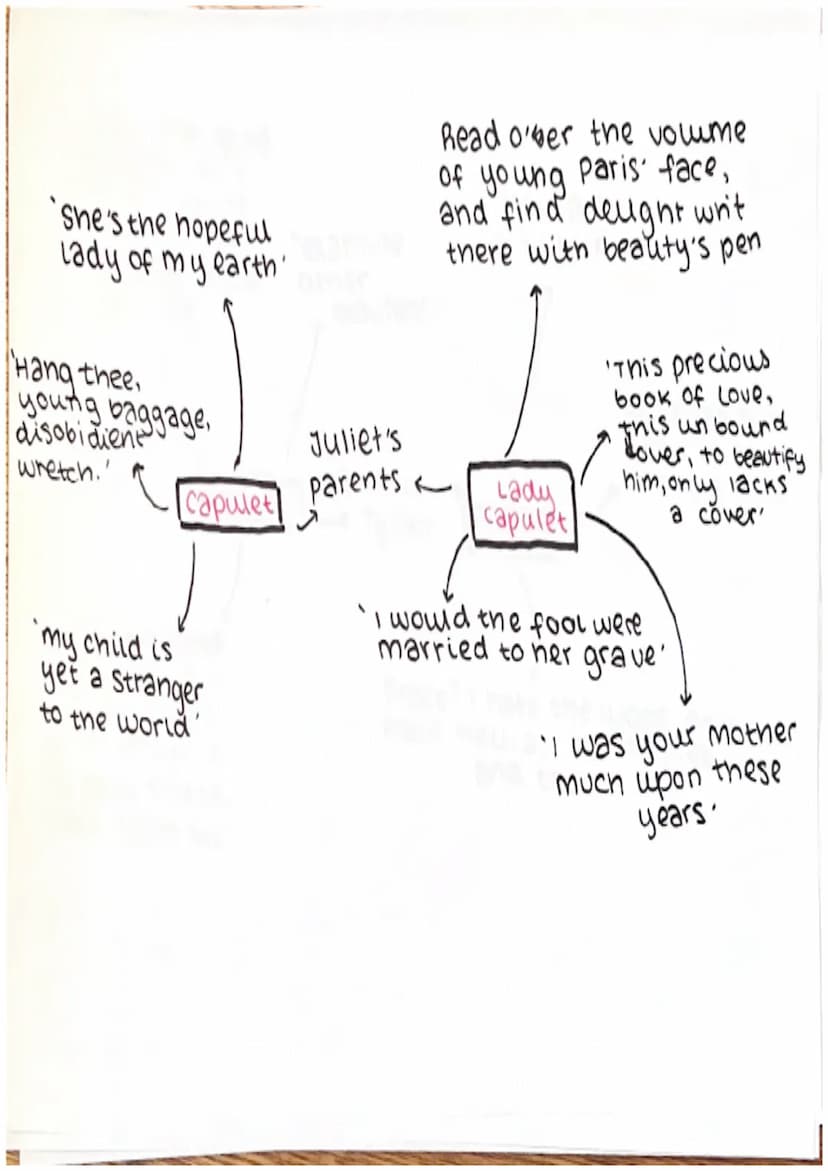 'She's the hopeful
lady of my earth'
'Hang thee,
young baggage,
disobidient
wretch.'
Capulet
'my child is
yet a stranger
to the world'
Juliet's
parents
Read o'er the volume
of young Paris' face,
and find delight writ
there with beauty's pen
Lady
Capulet
'This precious
book of love,
this unbound
lover, to beautify
him, only lacks
a cover'
'I would the fool were
married to her grave'
'I was your mother
much upon these
years.'